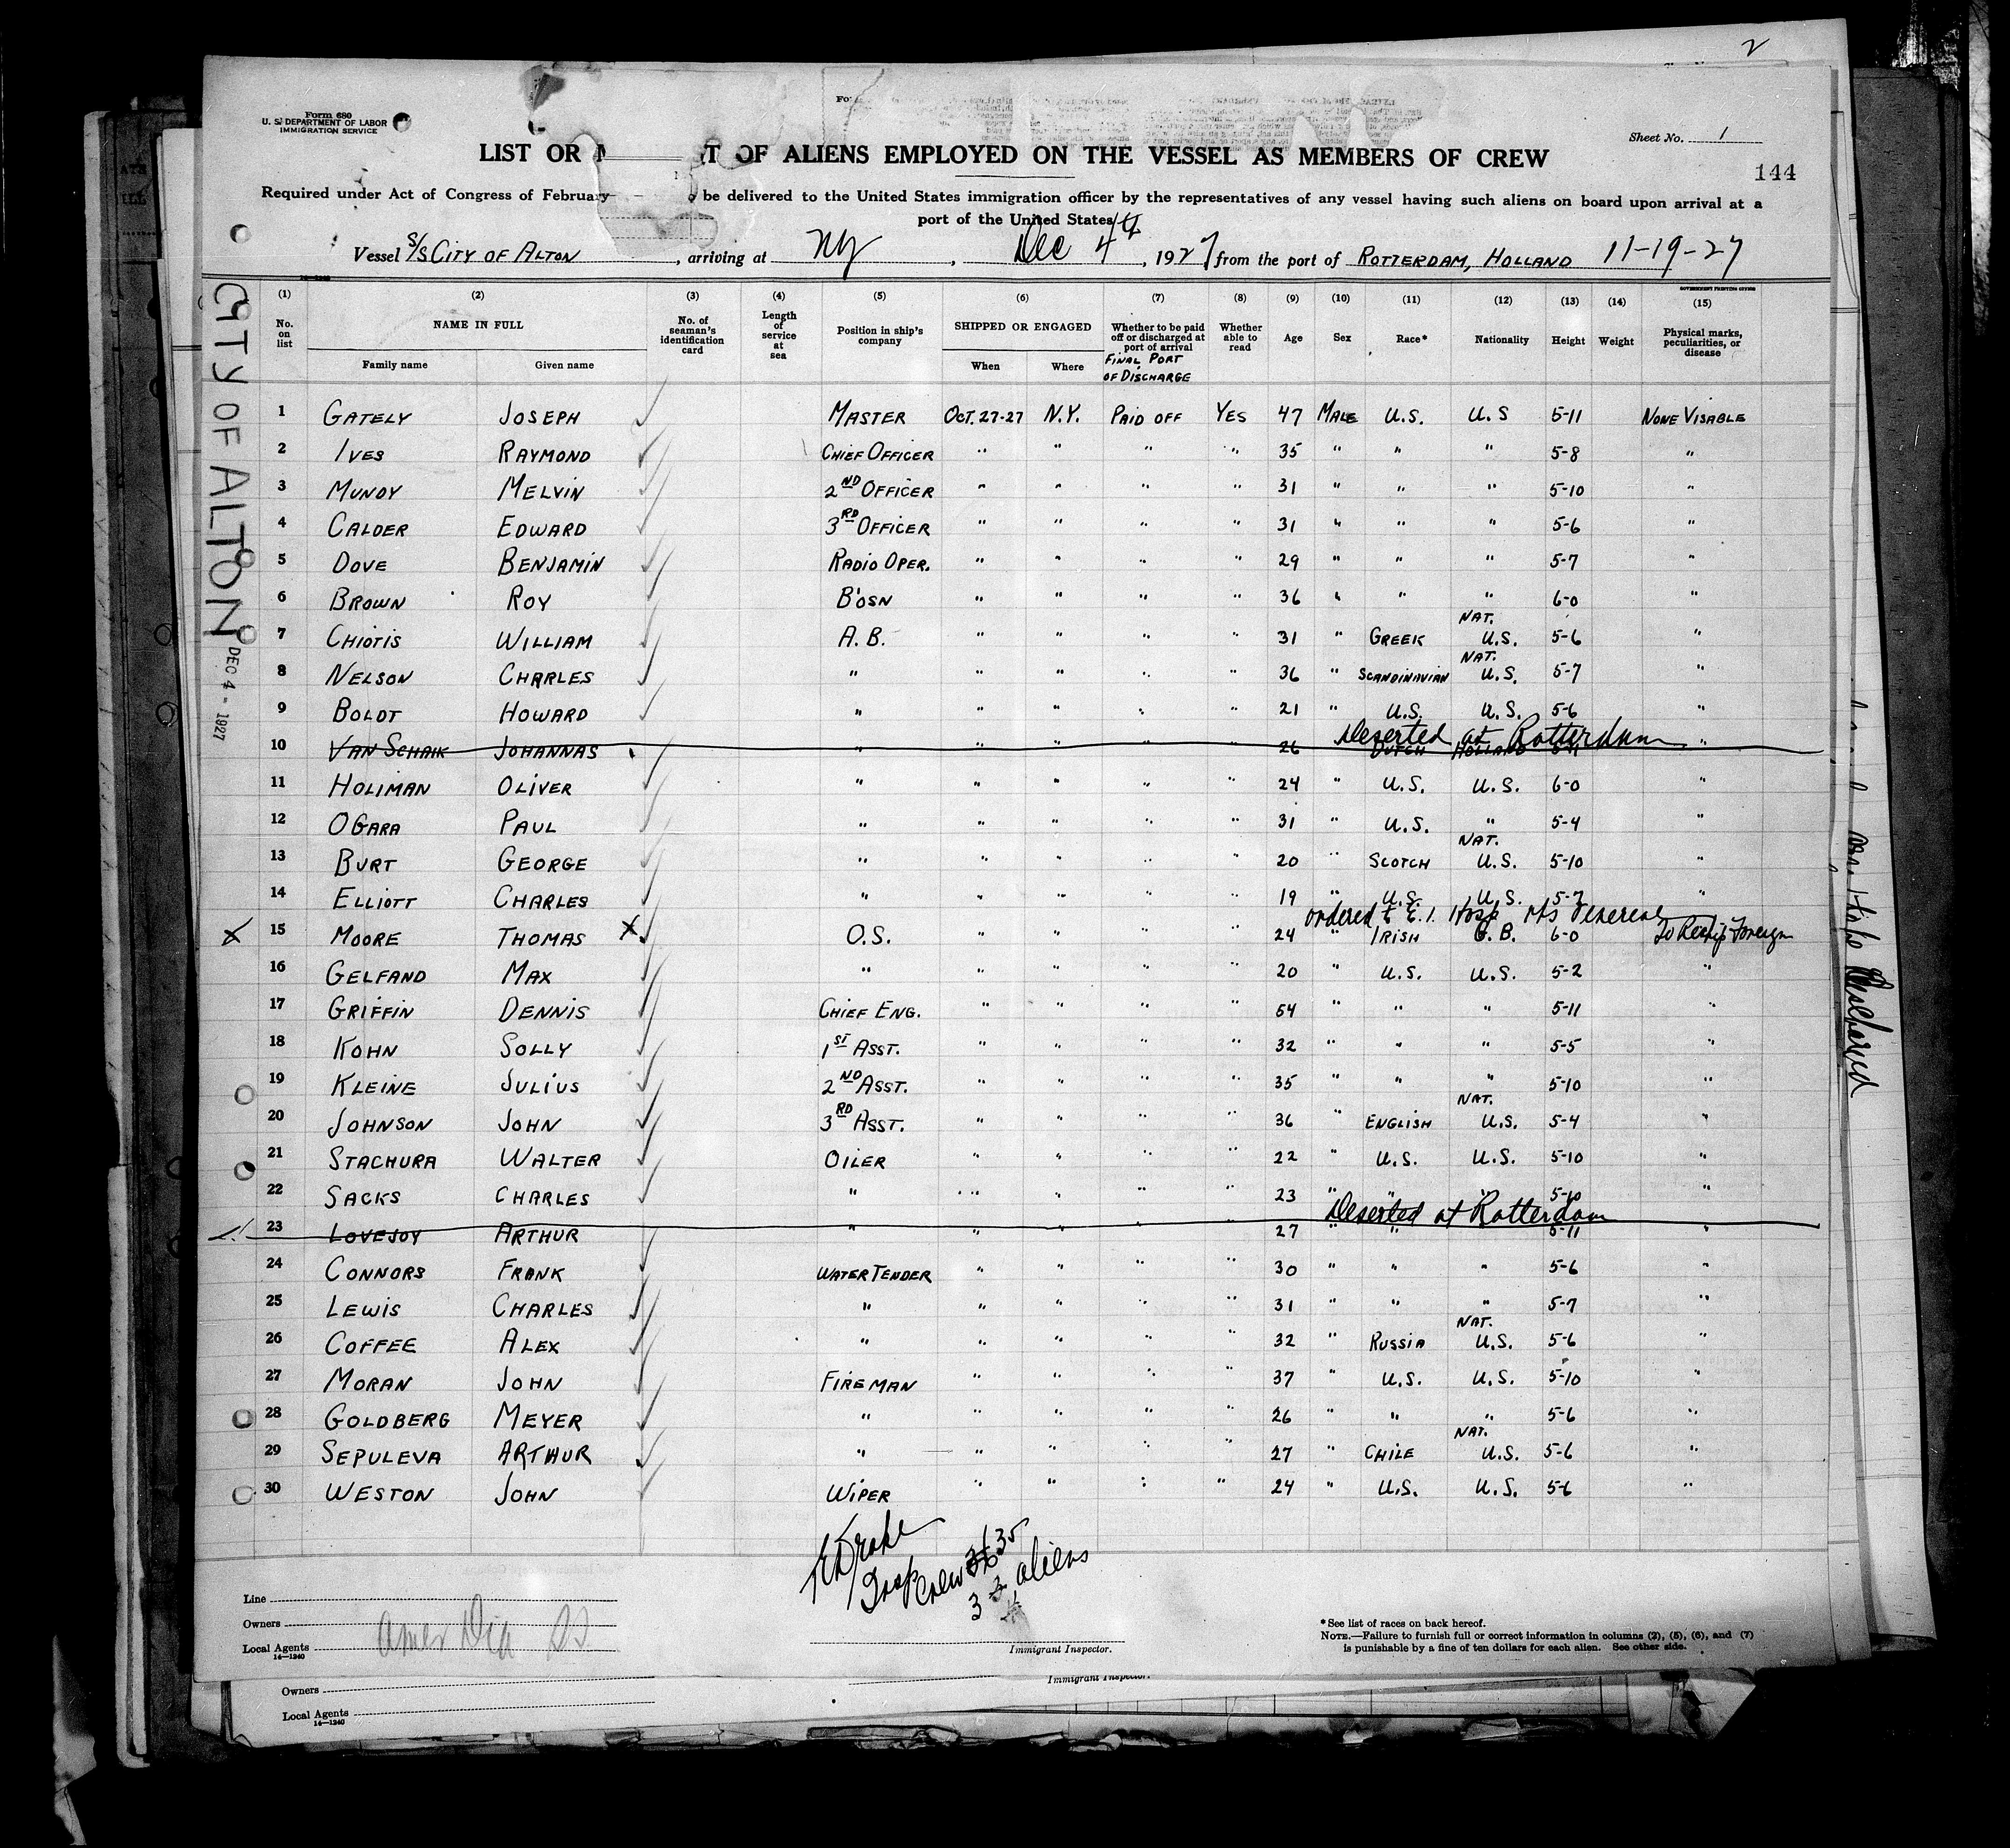 2
Form 680
U. S. DEPARTMENT OF LABOR
IMMIGRATION SERVICE
Sheet No. 1
LIST OR M T OF ALIENS EMPLOYED ON THE VESSEL AS MEMBERS OF CREW
144
Required under Act of Congress of February be delivered to the United States immigration officer by the representatives of any vessel having such aliens on board upon arrival at a
port of the United States
Vessel S/S CITY OF ALTON, arriving at NY, Dec 4th, 1927 from the port of ROTTERDAM, HOLLAND 11-19-27
CITY OF ALTON DEC 4 - 1927
(1) (2) (3) (4) (5) (6) (7) (8) (9) (10) (11) (12) (13) (14) (15)
No. on list NAME IN FULL Family name Given name No. of seaman's identification card Length of service at sea Position in ship's company SHIPPED OR ENGAGED When Where Whether to be paid off or discharged at port of arrival FINAL PORT OF DISCHARGE Whether able to read Age Sex Race* Nationality Height Weight Physical marks, peculiarities, or disease
GOVERNMENT PRINTING OFFICE
1 GATELY JOSEPH MASTER OCT. 27-27 N.Y. PAID OFF YES 47 MALE U.S. U.S 5-11 NONE VISABLE
2 IVES RAYMOND CHIEF OFFICER " " " " 35 " " " 5-8 "
3 MUNDY MELVIN 2ND OFFICER " " " " 31 " " " 5-10 "
4 CALDER EDWARD 3RD OFFICER " " " " 31 " " " 5-6 "
5 DOVE BENJAMIN RADIO OPER. " " " " 29 " " " 5-7 "
6 BROWN ROY B'OSN " " " " 36 " " " 6-0 "
7 CHIOTIS WILLIAM A.B. " " " " 31 " GREEK NAT. U.S. 5-6 "
8 NELSON CHARLES " " " " " 36 " SCANDINAVIAN NAT. U.S. 5-7 "
9 BOLDT HOWARD " " " " " 21 " U.S. U.S. 5-6 "
Deserted at Rotterdam
10 VAN SCHAIK JOHANNAS " " " " " 26 " DUTCH HOLLAND "
11 HOLIMAN OLIVER " " " " " 24 " U.S. U.S. 6-0 "
12 OGARA PAUL " " " " " 31 " U.S. " 5-4 "
13 BURT GEORGE " " " " " 20 " SCOTCH NAT. U.S. 5-10 "
14 ELLIOTT CHARLES " " " " " 19 " U.S. U.S. 5-7 "
ordered to E.I. Hosp
X 15 MOORE THOMAS X O.S. " " " " 24 " IRISH G.B. 6-0 To Reship Foreign
16 GELFAND MAX " " " " " 20 " U.S. U.S. 5-2 "
17 GRIFFIN DENNIS CHIEF ENG. " " " " 54 " " " 5-11 "
18 KOHN SOLLY 1ST ASST. " " " " 32 " " " 5-5 "
19 KLEINE JULIUS 2ND ASST. " " " " 35 " " " 5-10 "
20 JOHNSON JOHN 3RD ASST. " " " " 36 " ENGLISH NAT. U.S. 5-4 "
21 STACHURA WALTER OILER " " " " 22 " U.S. U.S. 5-10 "
22 SACKS CHARLES " " " " " 23 " " " 5-10 "
Deserted at Rotterdam
23 LOVEJOY ARTHUR " " " " " 27 " " 5-11 "
24 CONNORS FRANK WATER TENDER " " " " 30 " " " 5-6 "
25 LEWIS CHARLES " " " " " 31 " " " 5-7 "
26 COFFEE ALEX " " " " " 32 " RUSSIA NAT. U.S. 5-6 "
27 MORAN JOHN FIREMAN " " " " 37 " U.S. U.S. 5-10 "
28 GOLDBERG MEYER " " " " " 26 " " " 5-6 "
29 SEPULEVA ARTHUR " " " " " 27 " CHILE NAT. U.S. 5-6 "
30 WESTON JOHN WIPER " " " " 24 " U.S. U.S. 5-6 "
crew 35
3 aliens
Line
Owners
Local Agents
Amer Dia SS
14—1240
Immigrant Inspector.
*See list of races on back hereof.
NOTE.—Failure to furnish full or correct information in columns (2), (5), (6), and (7)
is punishable by a fine of ten dollars for each alien. See other side.
Owners
Local Agents
14—1240
Immigrant Inspector.